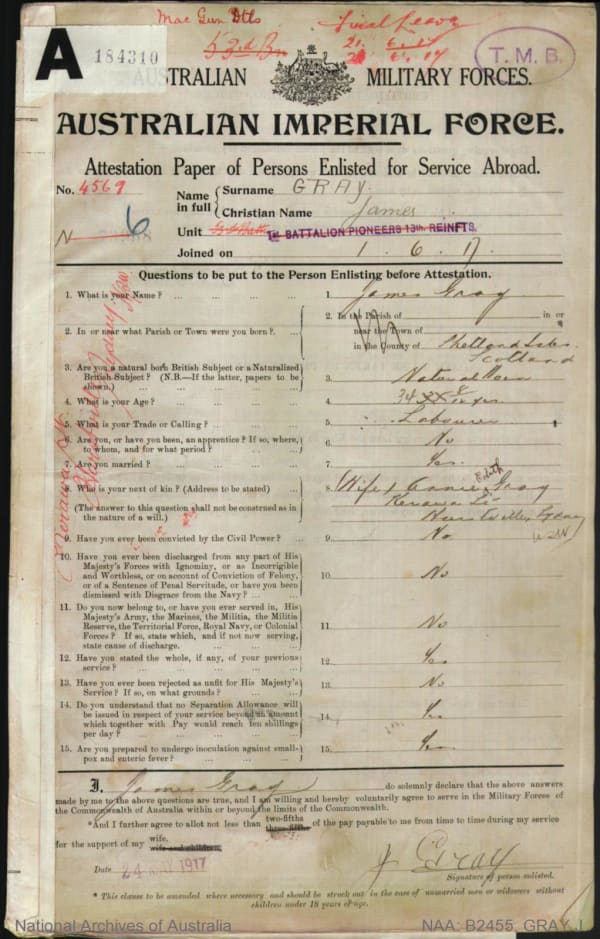 Mac Gun Dtls
Final Leave
53rd Bn
T. M. B.
A
184310
AUSTRALIAN MILITARY FORCES.
AUSTRALIAN IMPERIAL FORCE.
Attestation Paper of Persons Enlisted for Service Abroad.
No. 4569
Name in full { Surname GRAY.
Christian Name James
N 6
Unit 1st BATTALION PIONEERS 13th. REINFTS.
Joined on 1 . 6 . 17
Questions to be put to the Person Enlisting before Attestation.
1. What is your Name ? ... ... ... ... 1. James Gray
2. In or near what Parish or Town were you born ?. ... 2. In the Parish of in or
near the Town of
in the County of Shetland Isles.
Scotland
3. Are you a natural born British Subject or a Naturalized
British Subject ? (N.B.—If the latter, papers to be
shown.) ... ... ... ... 3. Natural Born
4. What is your Age ? ... ... ... ... 4. 34
5. What is your Trade or Calling ? ... ... ... 5. Labourer
6. Are you, or have you been, an apprentice ? If so, where,
to whom, and for what period ? ... ... ... 6. No
7. Are you married ? ... ... ... ... 7. Yes.
8. Who is your next of kin ? (Address to be stated) ... 8. Wife, Annie Edith Gray
(The answer to this question shall not be construed as in
the nature of a will.) Hurstville, Sydney
NSW
9. Have you ever been convicted by the Civil Power ? ... 9. No.
10. Have you ever been discharged from any part of His
Majesty's Forces with Ignominy, or as Incorrigible
and Worthless, or on account of Conviction of Felony,
or of a Sentence of Penal Servitude, or have you been
dismissed with Disgrace from the Navy ? ... ... 10. No
11. Do you now belong to, or have you ever served in, His
Majesty's Army, the Marines, the Militia, the Militia
Reserve, the Territorial Force, Royal Navy, or Colonial
Forces ? If so, state which, and if not now serving,
state cause of discharge. ... ... ... 11. No
12. Have you stated the whole, if any, of your previous
service ? ... ... ... ... 12. Yes
13. Have you ever been rejected as unfit for His Majesty's
Service ? If so, on what grounds ? ... ... 13. No
14. Do you understand that no Separation Allowance will
be issued in respect of your service beyond an amount
which together with Pay would reach ten shillings
per day ? ... ... ... ... 14. Yes
15. Are you prepared to undergo inoculation against small-
pox and enteric fever ? ... ... ... 15. Yes.
I, James Gray do solemnly declare that the above answers
made by me to the above questions are true, and I am willing and hereby voluntarily agree to serve in the Military Forces of
the Commonwealth of Australia within or beyond the limits of the Commonwealth.
*And I further agree to allot not less than two-fifths three-fifths of the pay payable to me from time to time during my service
for the support of my wife. wife and children.
Date 24 MAY 1917
J Gray
Signature of person enlisted.
* This clause to be amended where necessary and should be struck out in the case of unmarried men or widowers without
children under 18 years of age.
National Archives of Australia
NAA: B2455, GRAY J